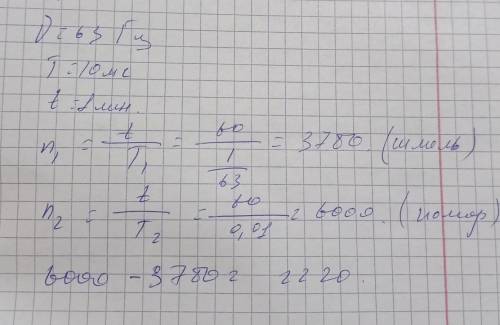 ν = 63 Гц
T = 10 мс
t = 1 мин.
n₁ = t/T₁ = 60/(1/63) = 3780. (шмель)
n₂ = t/T₂ = 60/0,01 = 6000. (комар)
6000 - 3780 = 2220.